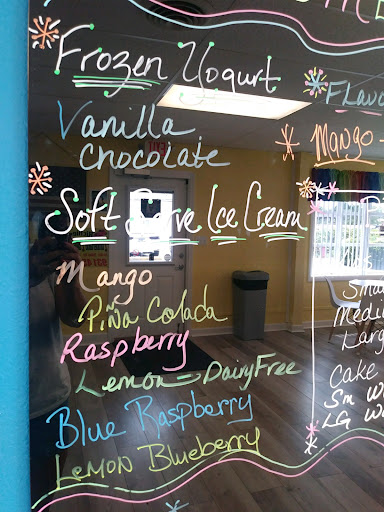 Frozen Yogurt
Vanilla
Chocolate
Soft Serve Ice Cream
Mango
Piña Colada
Raspberry
Lemon - Dairy Free
Blue Raspberry
Lemon Blueberry
Flavo
Mango -
Sma
Medi
Larg
Cake
Sm W
LG W